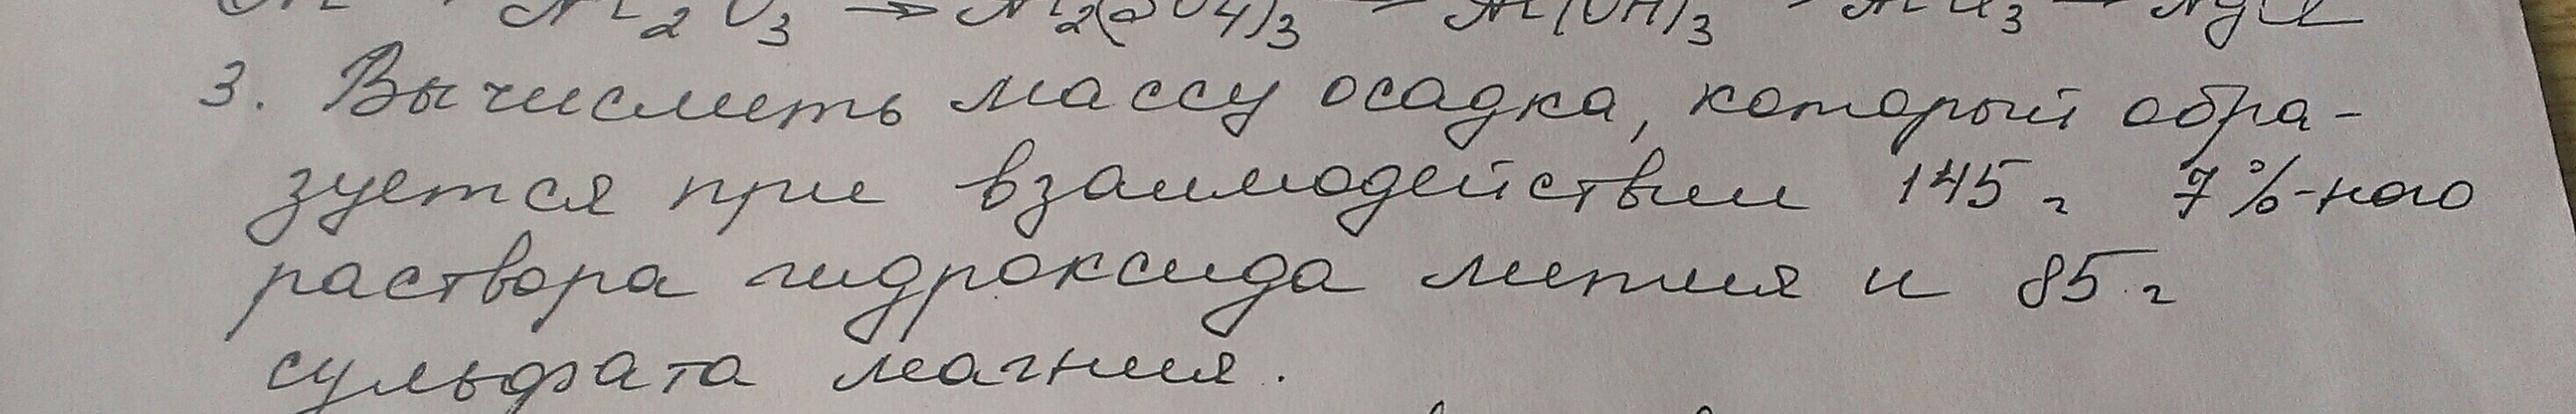 Al₂O₃ → Al₂(SO₄)₃ → Al(OH)₃ → AlCl₃ → AgCl
3. Вычислить массу осадка, который обра-
зуется при взаимодействии 145 г 7%-ного
раствора гидроксида лития и 85 г
сульфата магния.